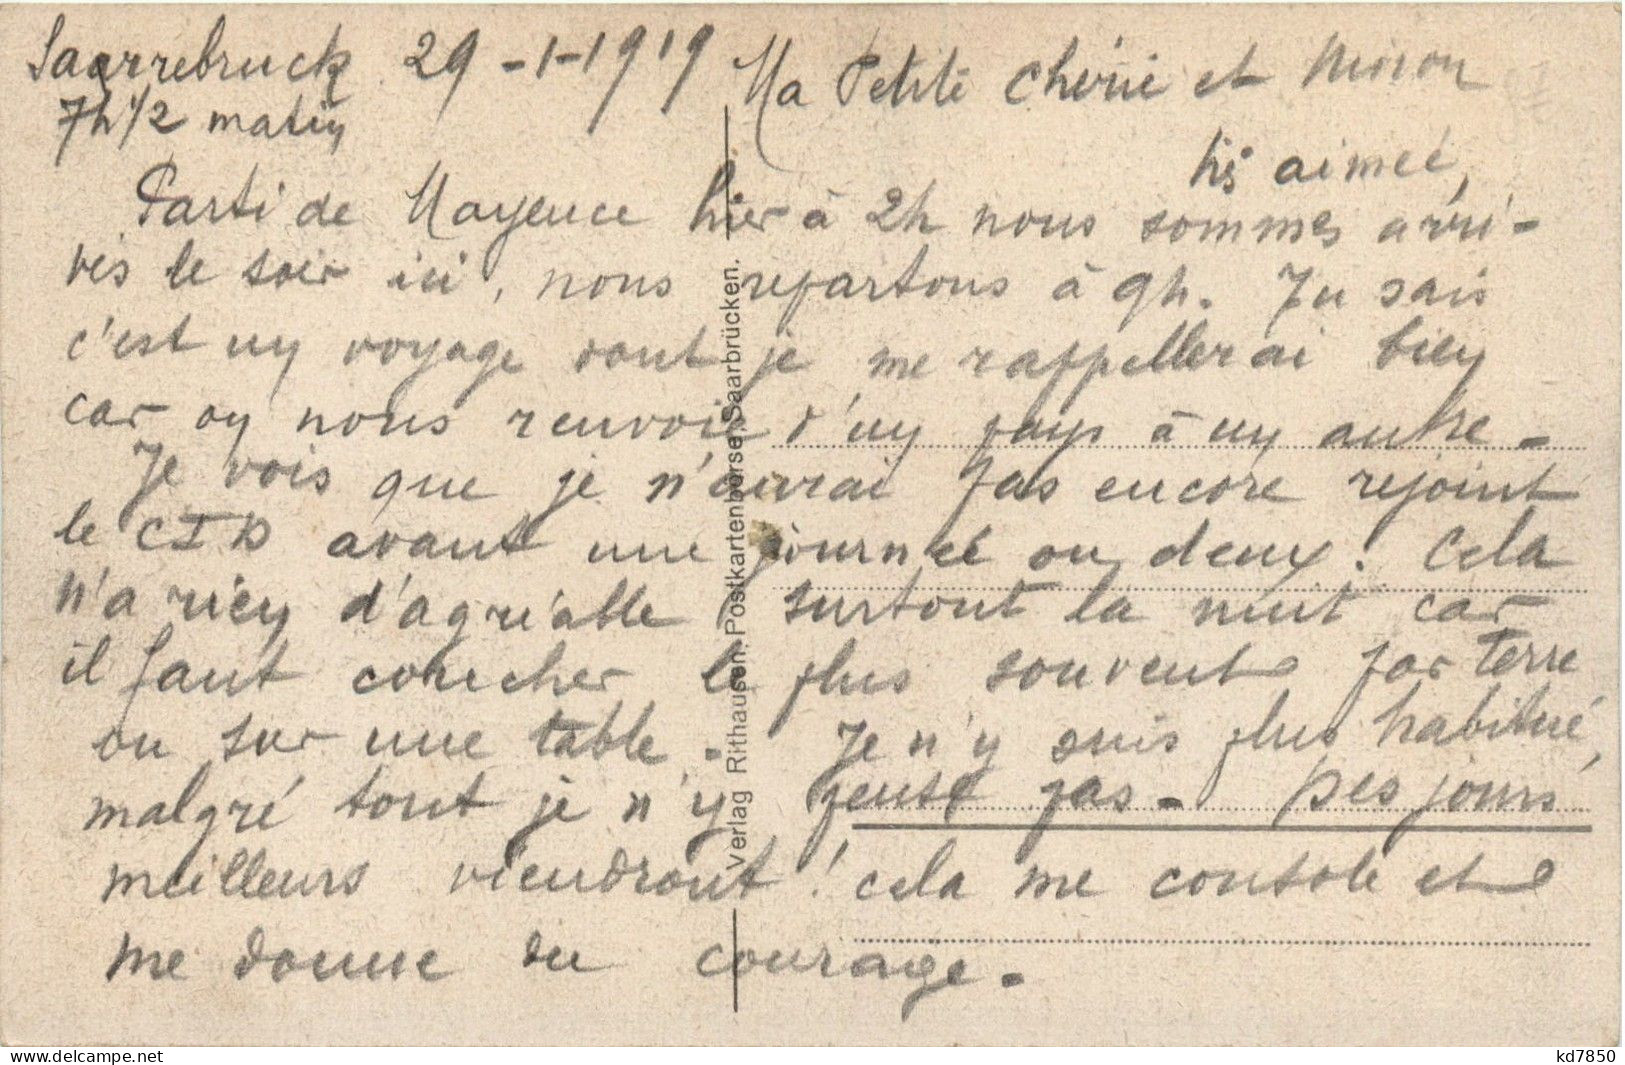 Saarrebruck 29-1-1919
7h 1/2 matin
Ma Petite chérie et Ninon
bis aimée,
Parti de Mayence hier à 2h nous sommes arri-
vés le soir ici, nous repartons à 9h. Tu sais
c'est un voyage dont je me rappellerai bien
car on nous renvoie d'un pays à un autre -
Je vois que je n'aurai pas encore rejoint
le CID avant une journée ou deux. Cela
n'a rien d'agréable surtout la nuit car
il faut coucher le plus souvent par terre
ou sur une table. Je n'y suis plus habitué,
malgré tout je n'y pense pas - Des jours
meilleurs viendront ! cela me console et
me donne du courage.
Verlag Rithausen, Postkartenbörse, Saarbrücken.
www.delcampe.net
kd7850